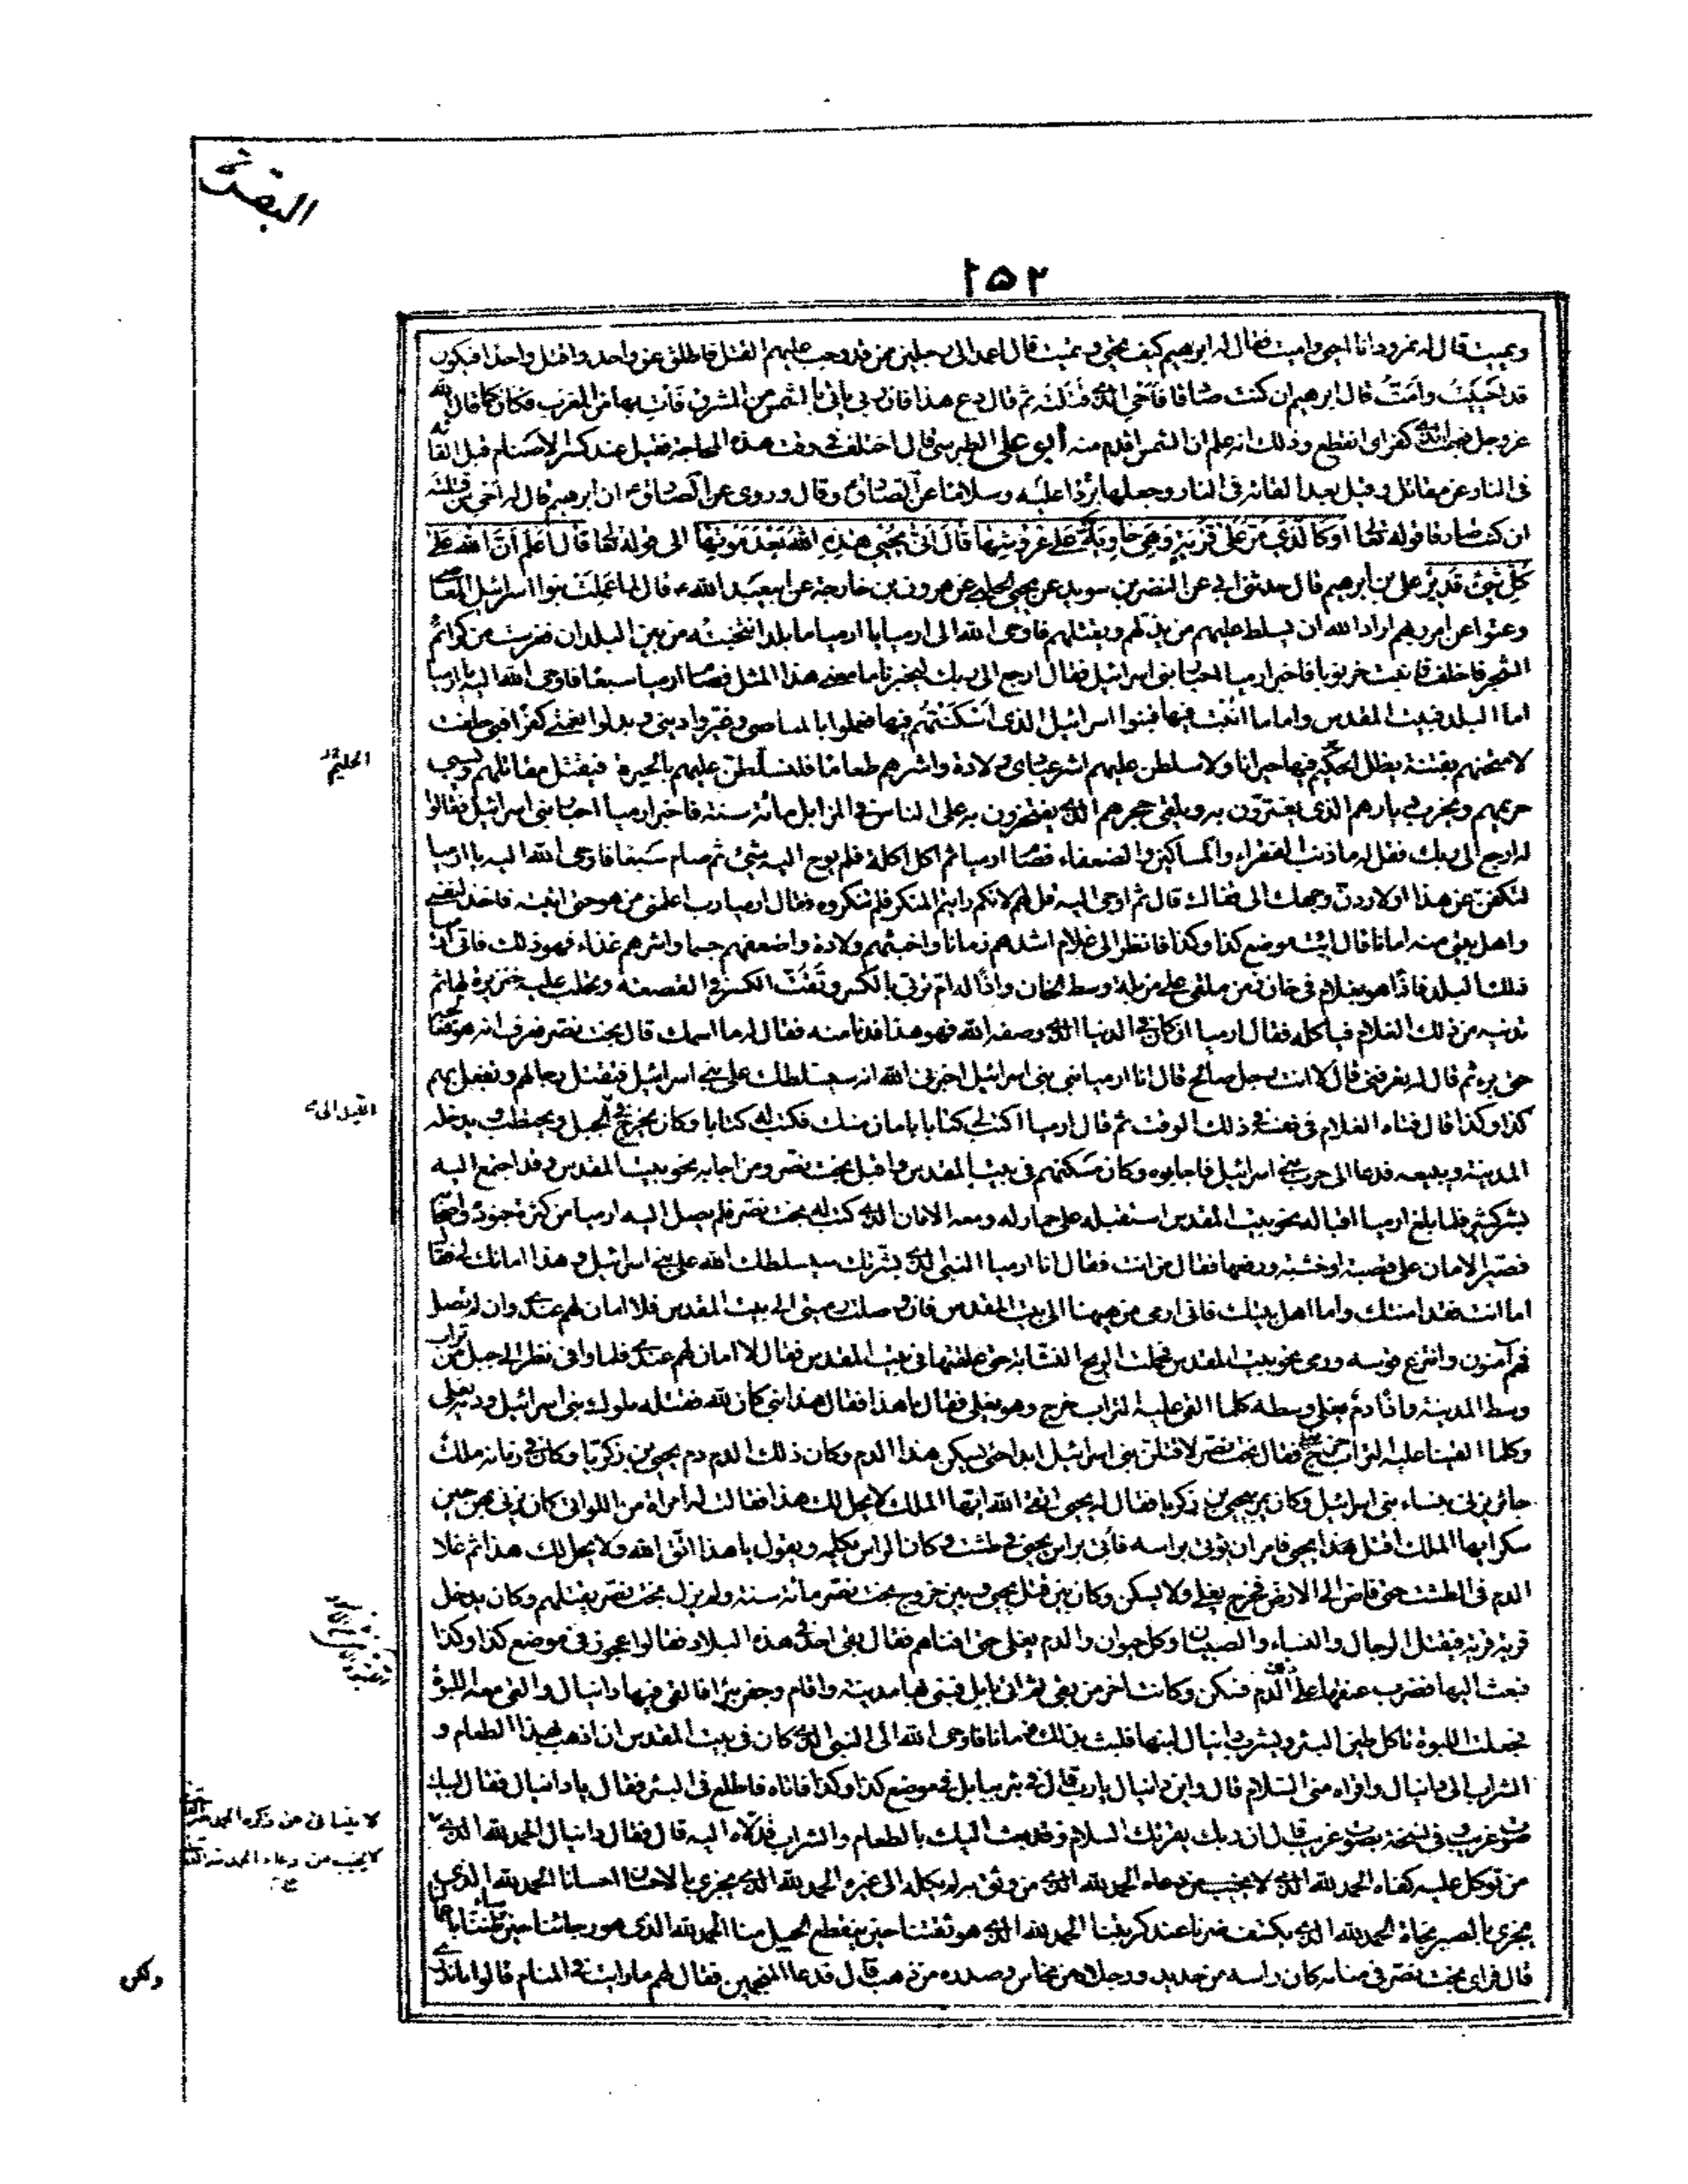 البقرة
٢٥٢
ويميت قال له نمرود انا احيى واميت فقال له ابرهيم كيف تحيى وتميت قال اعمد الى رجلين ممن قد وجب عليهم القتل فاطلق عن واحد واقتل واحدا فيكون
قد احييت وامت قال ابرهيم ان كنت صادقا فاحى الذى قتلته ثم قال دع هذا فان ربى ياتى بالشمس من المشرق فات بها من المغرب فكان كما قال الله
عز وجل فبهت الذى كفر اى انقطع وذلك انه علم ان الشمس اقدم منه أبو على الطبرسى قال اختلف فى وقت هذه المحاجة فقيل عند كسر الاصنام قبل القائه
فى النار عن مقاتل وقيل بعد القائه فى النار وجعلها بردا عليه وسلاما عن الصادق وقال وروى عن الصادق ان ابرهيم قال له احى من قتلته
ان كنت صادقا قوله تعالى اوكالذى مر على قرية وهى خاوية على عروشها قال انى يحيى هذه الله بعد موتها الى قوله تعالى قال اعلم ان الله على
كل شئ قدير على بن ابرهيم قال حدثنى ابى عن النضر بن سويد عن يحيى الحلبى عن هرون بن خارجة عن ابى عبد الله ع قال لما عملت بنوا اسرائيل المعاصى
وعتوا عن امر ربهم اراد الله ان يسلط عليهم من يذلهم ويقتلهم فاوحى الله الى ارميا يا ارميا ما بلد انتخبته من بين البلدان فغرست من كرائم
الشجر فاخلف فانبت خرنوبا فاخبر ارميا احبار بنى اسرائيل فقال ارجع الى ربك ليخبرنا ما معنى هذا المثل فصام ارميا سبعا فاوحى الله اليه يا ارميا
اما البلد فبيت المقدس واما ما انبت فيها فبنوا اسرائيل الذى اسكنتهم فيها فعملوا بالمعاصى وغيروا دينى وبدلوا نعمتى كفرا فبى حلفت
لامتحنهم بفتنة يظل الحكيم فيها حيرانا ولاسلطن عليهم اشر عبادى ولادة واشرهم طعاما فليتسلطن عليهم بالجبرية فيقتل مقاتليهم ويسبى
حريمهم ويخرب ديارهم الذى يغترون به ويلقى حجرهم الذى يفتخرون به على الناس فى المزابل مائة سنة فاخبر ارميا احبار بنى اسرائيل فقالوا
له ارجع الى ربك فقل له ما ذنب الفقراء والمساكين والضعفاء فصام ارميا ثم اكل اكلة فلم يوح اليه شئ ثم صام سبعا فاوحى الله اليه يا ارميا
لتكفن عن هذا او لاردن وجهك الى قفاك قال ثم اوحى اليه قل لهم لانكم رايتم المنكر فلم تنكروه فقال ارميا رب اعلمنى من هو حتى اتيه فاخذ لنفسى
واهل بيتى منه امانا قال ائت موضع كذا وكذا فانظر الى غلام اشدهم زمانا واخبثهم ولادة واضعفهم جسما واشرهم غذاء فهو ذلك فاتى ارميا
ذلك البلد فاذا هو بغلام فى خان زمن ملقى على مزبلة وسط الخان واذا له ام تزبى بالكسر وتفت الكسر فى القصعة وتحلب عليه خنزيرة لها ثم
تدنيه من ذلك الغلام فياكله فقال ارميا ان كان فى الدنيا الذى وصفه الله فهو هذا فدنا منه فقال له ما اسمك قال بخت نصر فعرف انه هو فعالجه
حتى برء ثم قال له تعرفنى قال لا انت رجل صالح قال انا ارميا نبى بنى اسرائيل اخبرنى الله انه سيسلطك على بنى اسرائيل فتقتل رجالهم وتفعل بهم
كذا وكذا قال فتاه الغلام فى نفسه فى ذلك الوقت ثم قال ارميا اكتب لى كتابا بامان منك فكتب له كتابا وكان يخرج فى الجبل ويحتطب ويدخله
المدينة ويبيعه فدعا الى حرب بنى اسرائيل فاجابوه وكان مسكنهم فى بيت المقدس واقبل بخت نصر ومن اجابه نحو بيت المقدس وقد اجتمع اليه
بشر كثير فلما بلغ ارميا اقباله نحو بيت المقدس استقبله على حمار له ومعه الامان الذى كتبه له بخت نصر فلم يصل اليه ارميا من كثرة جنوده واصحابه
فصير الامان على قصبة او خشبة ورفعها فقال من انت فقال انا ارميا النبى الذى بشرتك سيسلطك الله على بنى اسرائيل وهذا امانك لى فقال
اما انت فقد امنتك واما اهل بيتك فانى ارمى من هيهنا الى بيت المقدس فان وصلت رميتى الى بيت المقدس فلا امان لهم عندى وان لم تصل
فهم آمنون وانتزع قوسه ورمى نحو بيت المقدس فحملت الريح النشابة حتى علقتها فى بيت المقدس فقال لا امان لهم عندى فلما وافى نظر الى جبل من تراب
وسط المدينة واذا دم يغلى وسطه كلما القى عليه التراب خرج وهو يغلى فقال ما هذا فقال هذا نبى كان لله فقتله ملوك بنى اسرائيل ودمه يغلى
وكلما القينا عليه التراب خرج يغلى فقال بخت نصر لاقتلن بنى اسرائيل ابدا حتى يسكن هذا الدم وكان ذلك الدم دم يحيى بن زكريا وكان فى زمانه ملك
جائر يزنى بنساء بنى اسرائيل وكان يمر بيحيى بن زكريا فقال له يحيى اتق الله ايها الملك لا يحل لك هذا فقالت له امراة من اللواتى كان يزنى بهن حين
سكر ايها الملك اقتل هذا يحيى فامر ان يؤتى براسه فأتى براس يحيى فى طشت وكان الراس يكلمه ويقول يا هذا اتق الله ولا يحل لك هذا ثم غلا
الدم فى الطشت حتى فاض الى الارض فخرج يغلى ولا يسكن وكان بين قتل يحيى وبين خروج بخت نصر مائة سنة ولم يزل بخت نصر يقتلهم وكان يدخل
قرية قرية فيقتل الرجال والنساء والصبيان وكل حيوان والدم يغلى حتى افناهم فقال بقى احد فى هذه البلاد فقالوا عجوز فى موضع كذا وكذا
فبعث اليها فضرب عنقها على الدم فسكن وكانت اخر من بقى ثم اتى بابل فبنى بها مدينة واقام وحفر بئرا فالقى فيها دانيال والقى معه اللبوة
فجعلت اللبوة تاكل طين البئر ويشرب دانيال لبنها فلبث بذلك زمانا فاوحى الله الى النبى الذى كان فى بيت المقدس ان اذهب بهذا الطعام و
الشراب الى دانيال واقرأه منى السلام قال واين دانيال يا رب قال فى بئر ببابل فى موضع كذا وكذا فاتاه فاطلع فى البئر فقال يا دانيال فقال لبيك
صوت غريب وفى نسخة بصوت غريب قال ان ربك يقرئك السلام وقد بعث اليك بالطعام والشراب فدلاه اليه قال فقال دانيال الحمد لله الذى
من توكل عليه كفاه الحمد لله الذى لا يخيب من دعاه الحمد لله الذى من وثق به لم يكله الى غيره الحمد لله الذى يجزى بالاحسان احسانا الحمد لله الذى
يجزى بالصبر نجاة الحمد لله الذى يكشف ضرنا عند كربتنا الحمد لله الذى هو ثقتنا حين ينقطع الحيل منا الحمد لله الذى هو رجائنا حين ساء ظننا باعمالنا
قال فراى بخت نصر فى منامه كان راسه من حديد ورجلاه من نحاس وصدره من ذهب قال فدعا المنجمين فقال لهم ما رايت فى المنام قالوا ما ندرى
الحليم
لا ينسانى من ذكره الحمد لله
لا يخيب من دعاه الحمد لله
ولكن